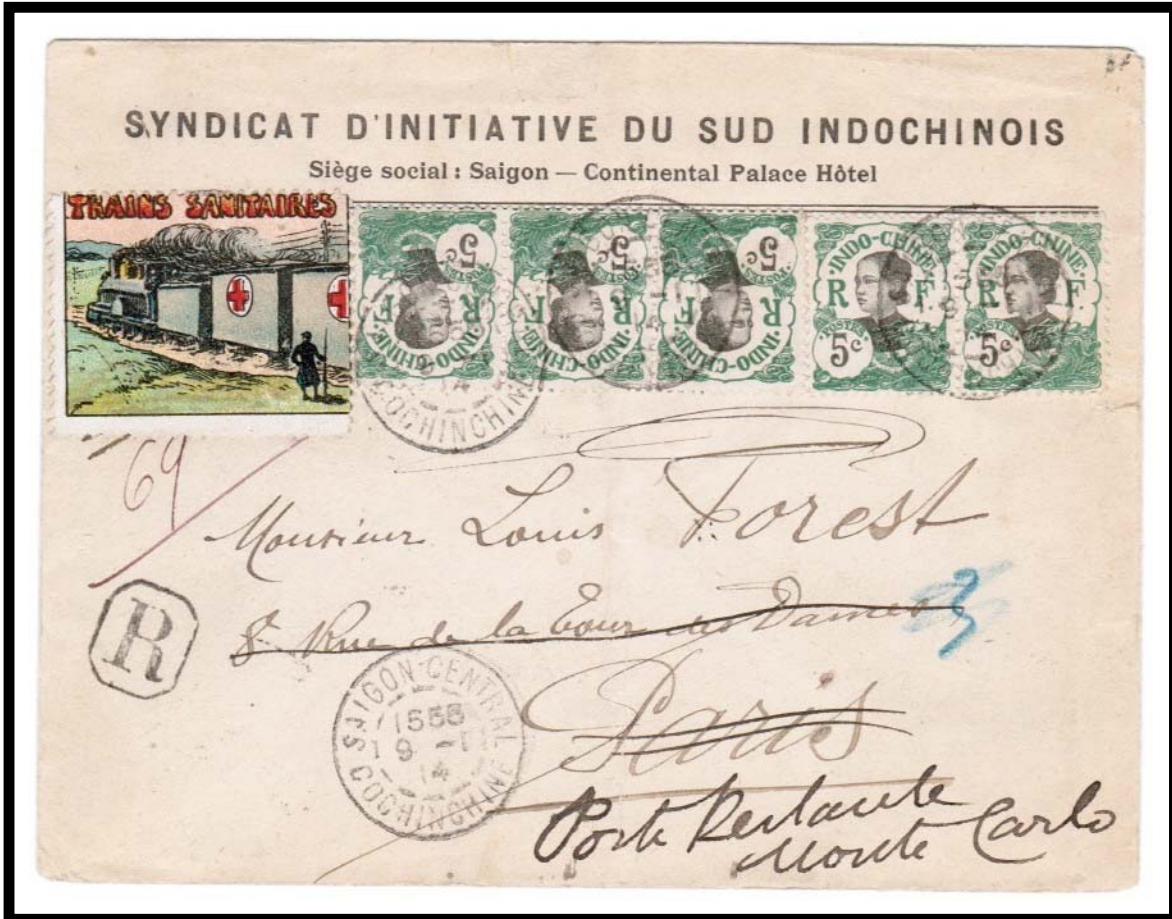 SYNDICAT D'INITIATIVE DU SUD INDOCHINOIS
Siège social : Saigon — Continental Palace Hôtel
TRAINS SANITAIRES
5c POSTES R F INDO-CHINE
5c POSTES R F INDO-CHINE
5c POSTES R F INDO-CHINE
INDO-CHINE R F POSTES 5c
INDO-CHINE R F POSTES 5c
COCHINCHINE
69
Monsieur Louis Forest
R
8 Rue de la Tour des Dames
Paris
SAIGON-CENTRAL
1555
9 -11
14
COCHINCHINE
Poste Restante
Monte Carlo